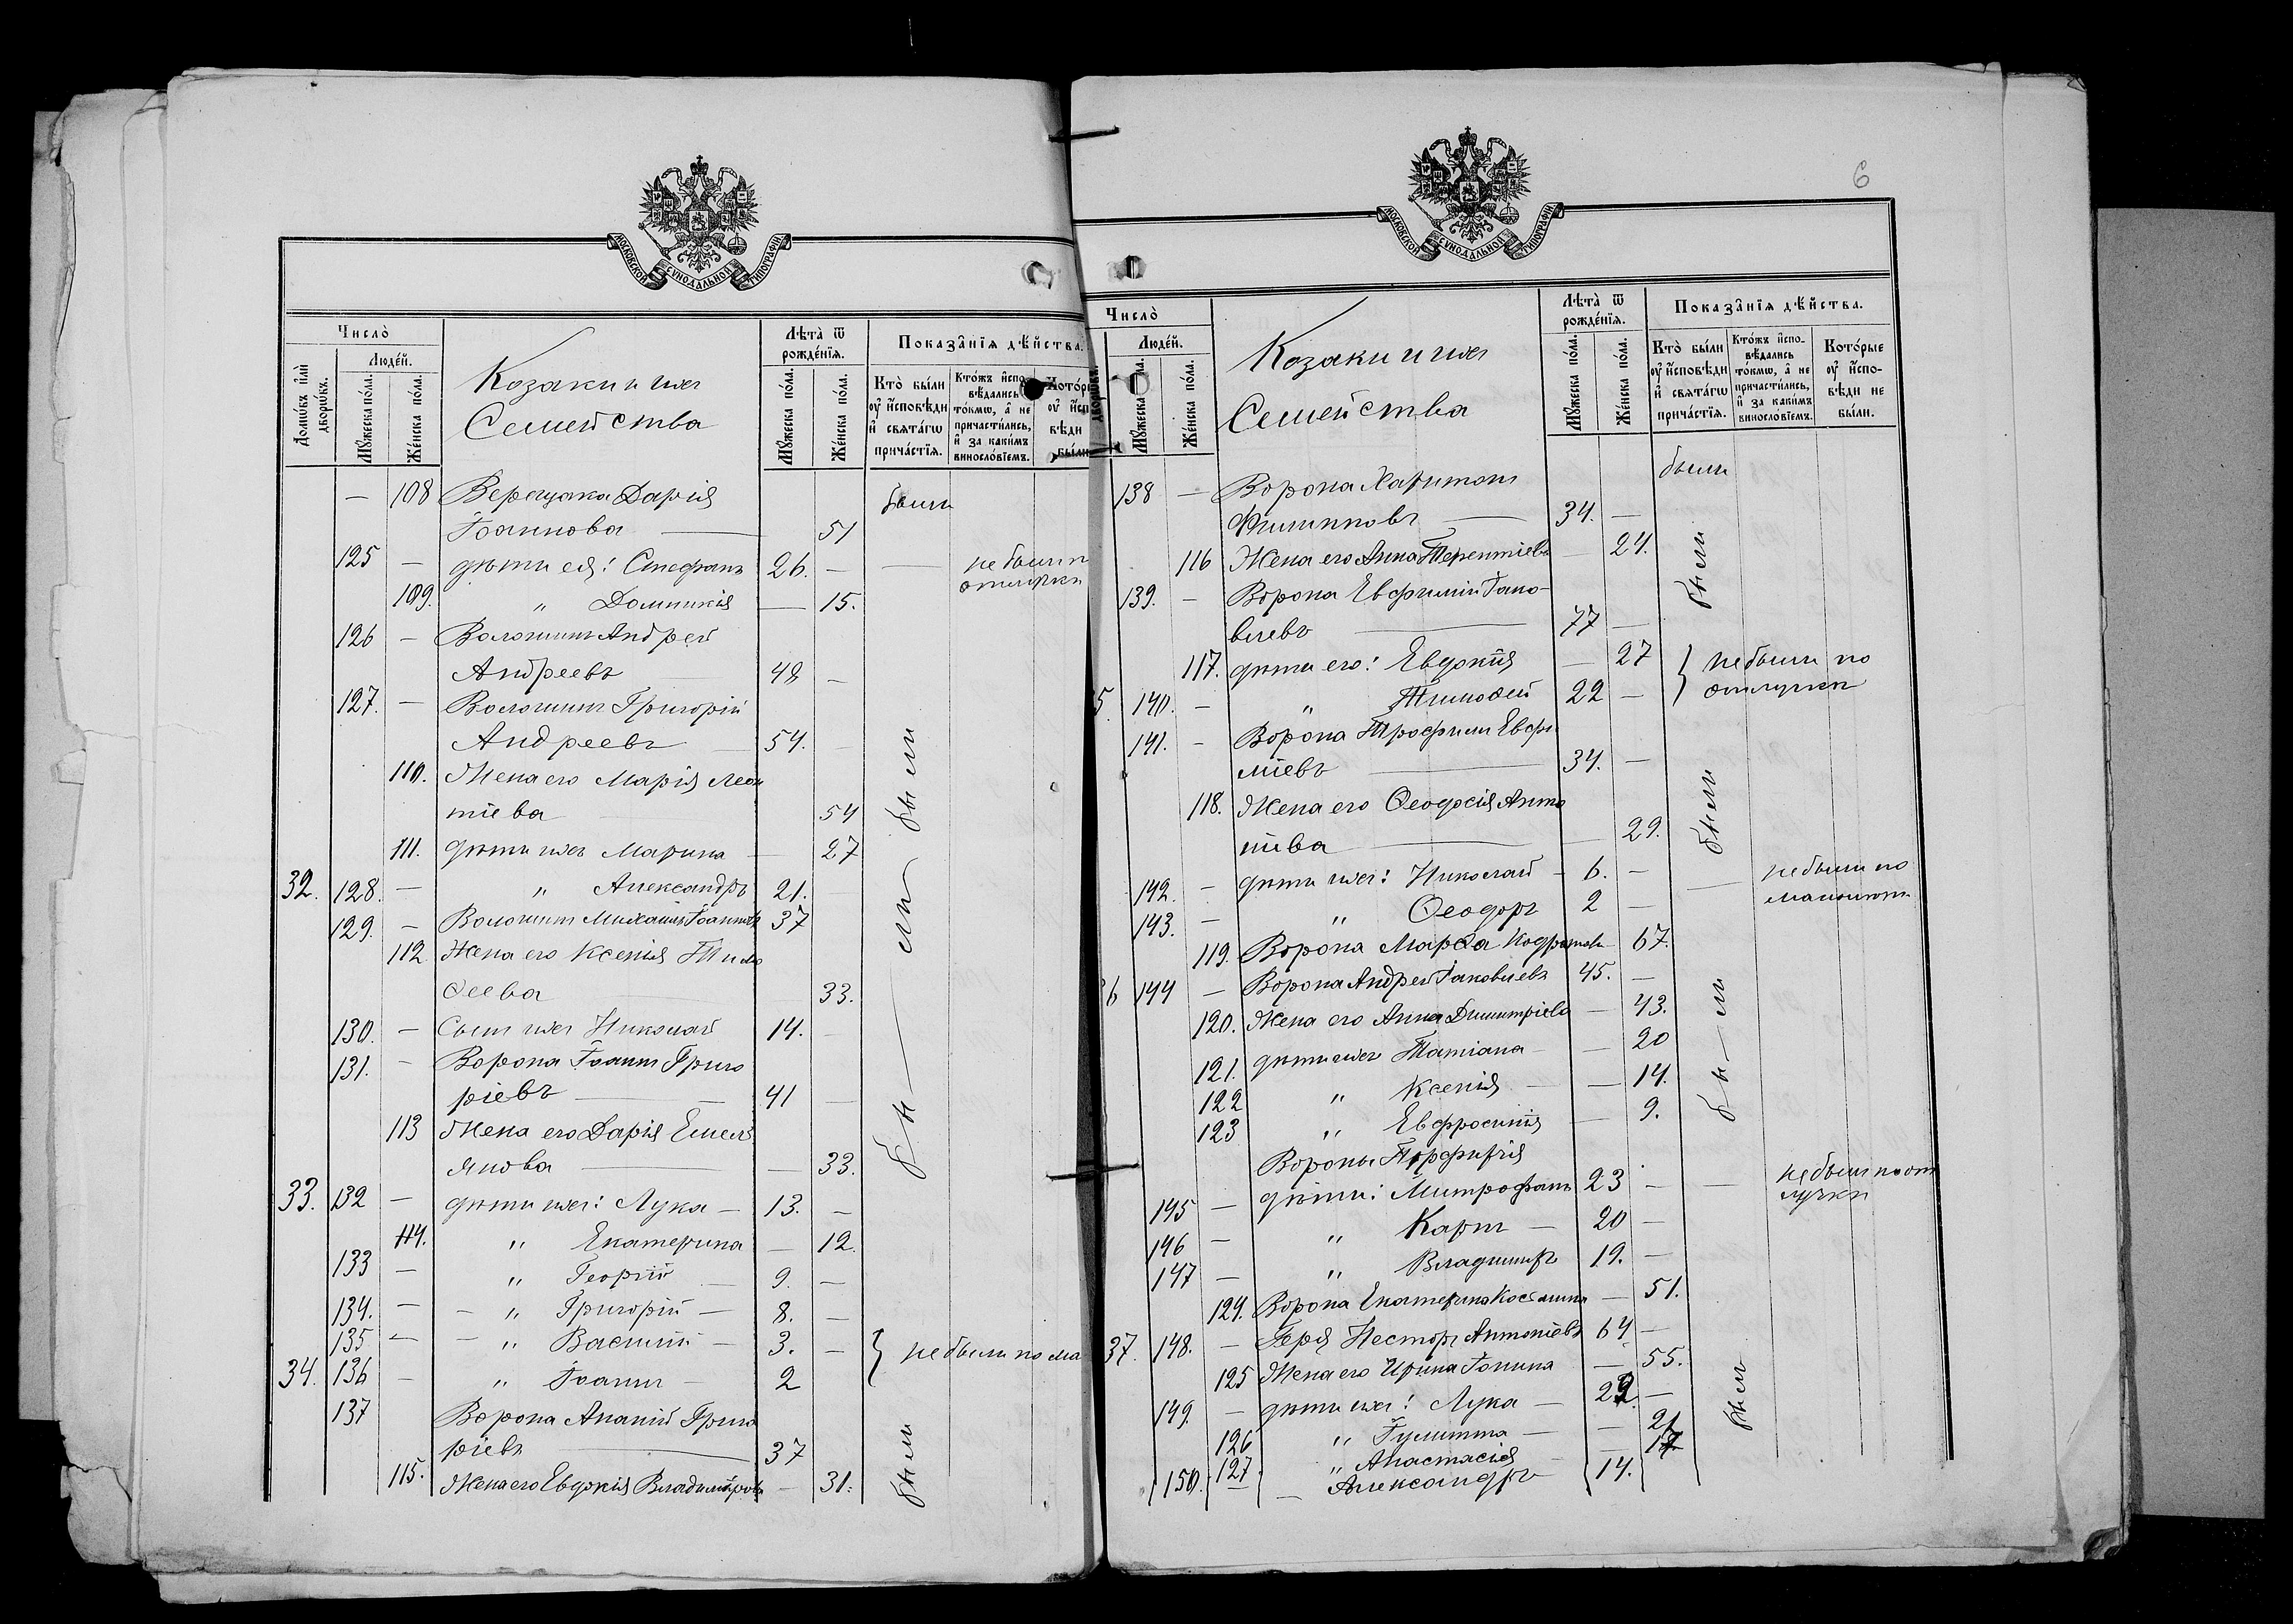 МОСКОВСКОЙ СУНОДАЛЬНОЙ ТИПОГРАФІИ
Число̀
Домѡ́въ и҆лѝ дворѡ́въ.
Люде́й.
Мꙋ́жеска по́ла.
Же́нска по́ла.
Козаки и ихъ
Семейства
Лѣ́та ѿ рожде́нїѧ.
Мꙋ́жеска по́ла.
Же́нска по́ла.
Показа̑нїѧ дѣ́йства.
Кто̀ бы́ли ᲂу҆ и҆́сповѣди и҆ свѧта́гѡ прича́стїѧ.
Кто́жъ и҆спо-вѣ́дались то́кмѡ, а҆ не причасти́лись, и҆ за каки́мъ виносло́вїемъ.
108 Верещака Дарія
Іоаннова — 51 были
125 — дѣти ея: Стефанъ 26. — не были по отлучки
109. " Домникія — 15.
126 — Волошинъ Андрей
Андреевъ 48 —
127. — Волошинъ Григорій
Андреевъ 54. —
110. Жена его Марія Леон
тіева 54 были
111. дѣти ихъ Марина — 27
32. 128. — " Александръ 21.
129. — Волошинъ Михаилъ Іоанновъ 37
112 Жена его Ксенія Тимо
ѳеева 33.
130. — Сынъ ихъ Николай 14.
131. — Ворона Іоаннъ Григо
ріевъ — 41 — были
113 Жена его Дарія Емелі
янова — 33.
33. 132 — дѣти ихъ: Лука — 13. —
114. " Екатерина — 12.
133 — " Георгій — 9. —
134. — " Григорій — 8. —
135 — " Василій — 3. —
34. 136 — " Іоаннъ — 2 не были по ма
137 Ворона Ананій Григо
ріевъ — 37
115. Жена его Евдокія Владиміров — 31. были
6
МОСКОВСКОЙ СУНОДАЛЬНОЙ ТИПОГРАФІИ
Число̀
Люде́й.
Же́нска по́ла.
Козаки и ихъ
Семейства
Лѣ́та ѿ рожде́нїѧ.
Мꙋ́жеска по́ла.
Же́нска по́ла.
Показа̑нїѧ дѣ́йства.
Кто̀ бы́ли ᲂу҆ и҆́сповѣди и҆ свѧта́гѡ прича́стїѧ.
Кто́жъ и҆спо-вѣ́дались то́кмѡ, а҆ не причасти́лись, и҆ за каки́мъ виносло́вїемъ.
Кото́рые ᲂу҆ и҆́спо-вѣди не бы́ли.
138 — Ворона Харитонъ были
Филипповъ — 34. —
116 Жена его Анна Терентіев — 24. были
139. — Ворона Евфимій Іако-
влевъ — 77 —
117. дѣти его: Евдокія — 27 не были по
5. 140. — " Тимоѳей 22 — отлучки
141. — Ворона Трофимъ Евфи
міевъ — 34. —
118. Жена его Ѳеодосія Анто
нїева — 29. были
142. — дѣти ихъ: Николай — 6. — не были по
143. — " Ѳеодоръ 2 — малолѣт
119. Ворона Марѳа Кодратова 67.
36 144 — Ворона Андрей Іаковлевъ 45. —
120. Жена его Анна Димитріева — 43.
121. дѣти ихъ Татіана — 20 были
122 " Ксенія — 14.
123 " Евфросинія — 9.
Вороны Порфирія
145 — дѣти: Митрофанъ 23 — не были по от
146 — " Карпъ — 20 — лучки
147 — " Владиміръ 19. —
124. Ворона Екатерина Космина — 51.
37. 148. — Геря Несторъ Антоніевъ 64 —
125 Жена его Ирина Іонина — 55.
149. — дѣти ихъ: Лука — 22. — были
126 " Гулитта — 21
127. " Анастасія — 17
150. — Александръ 14.